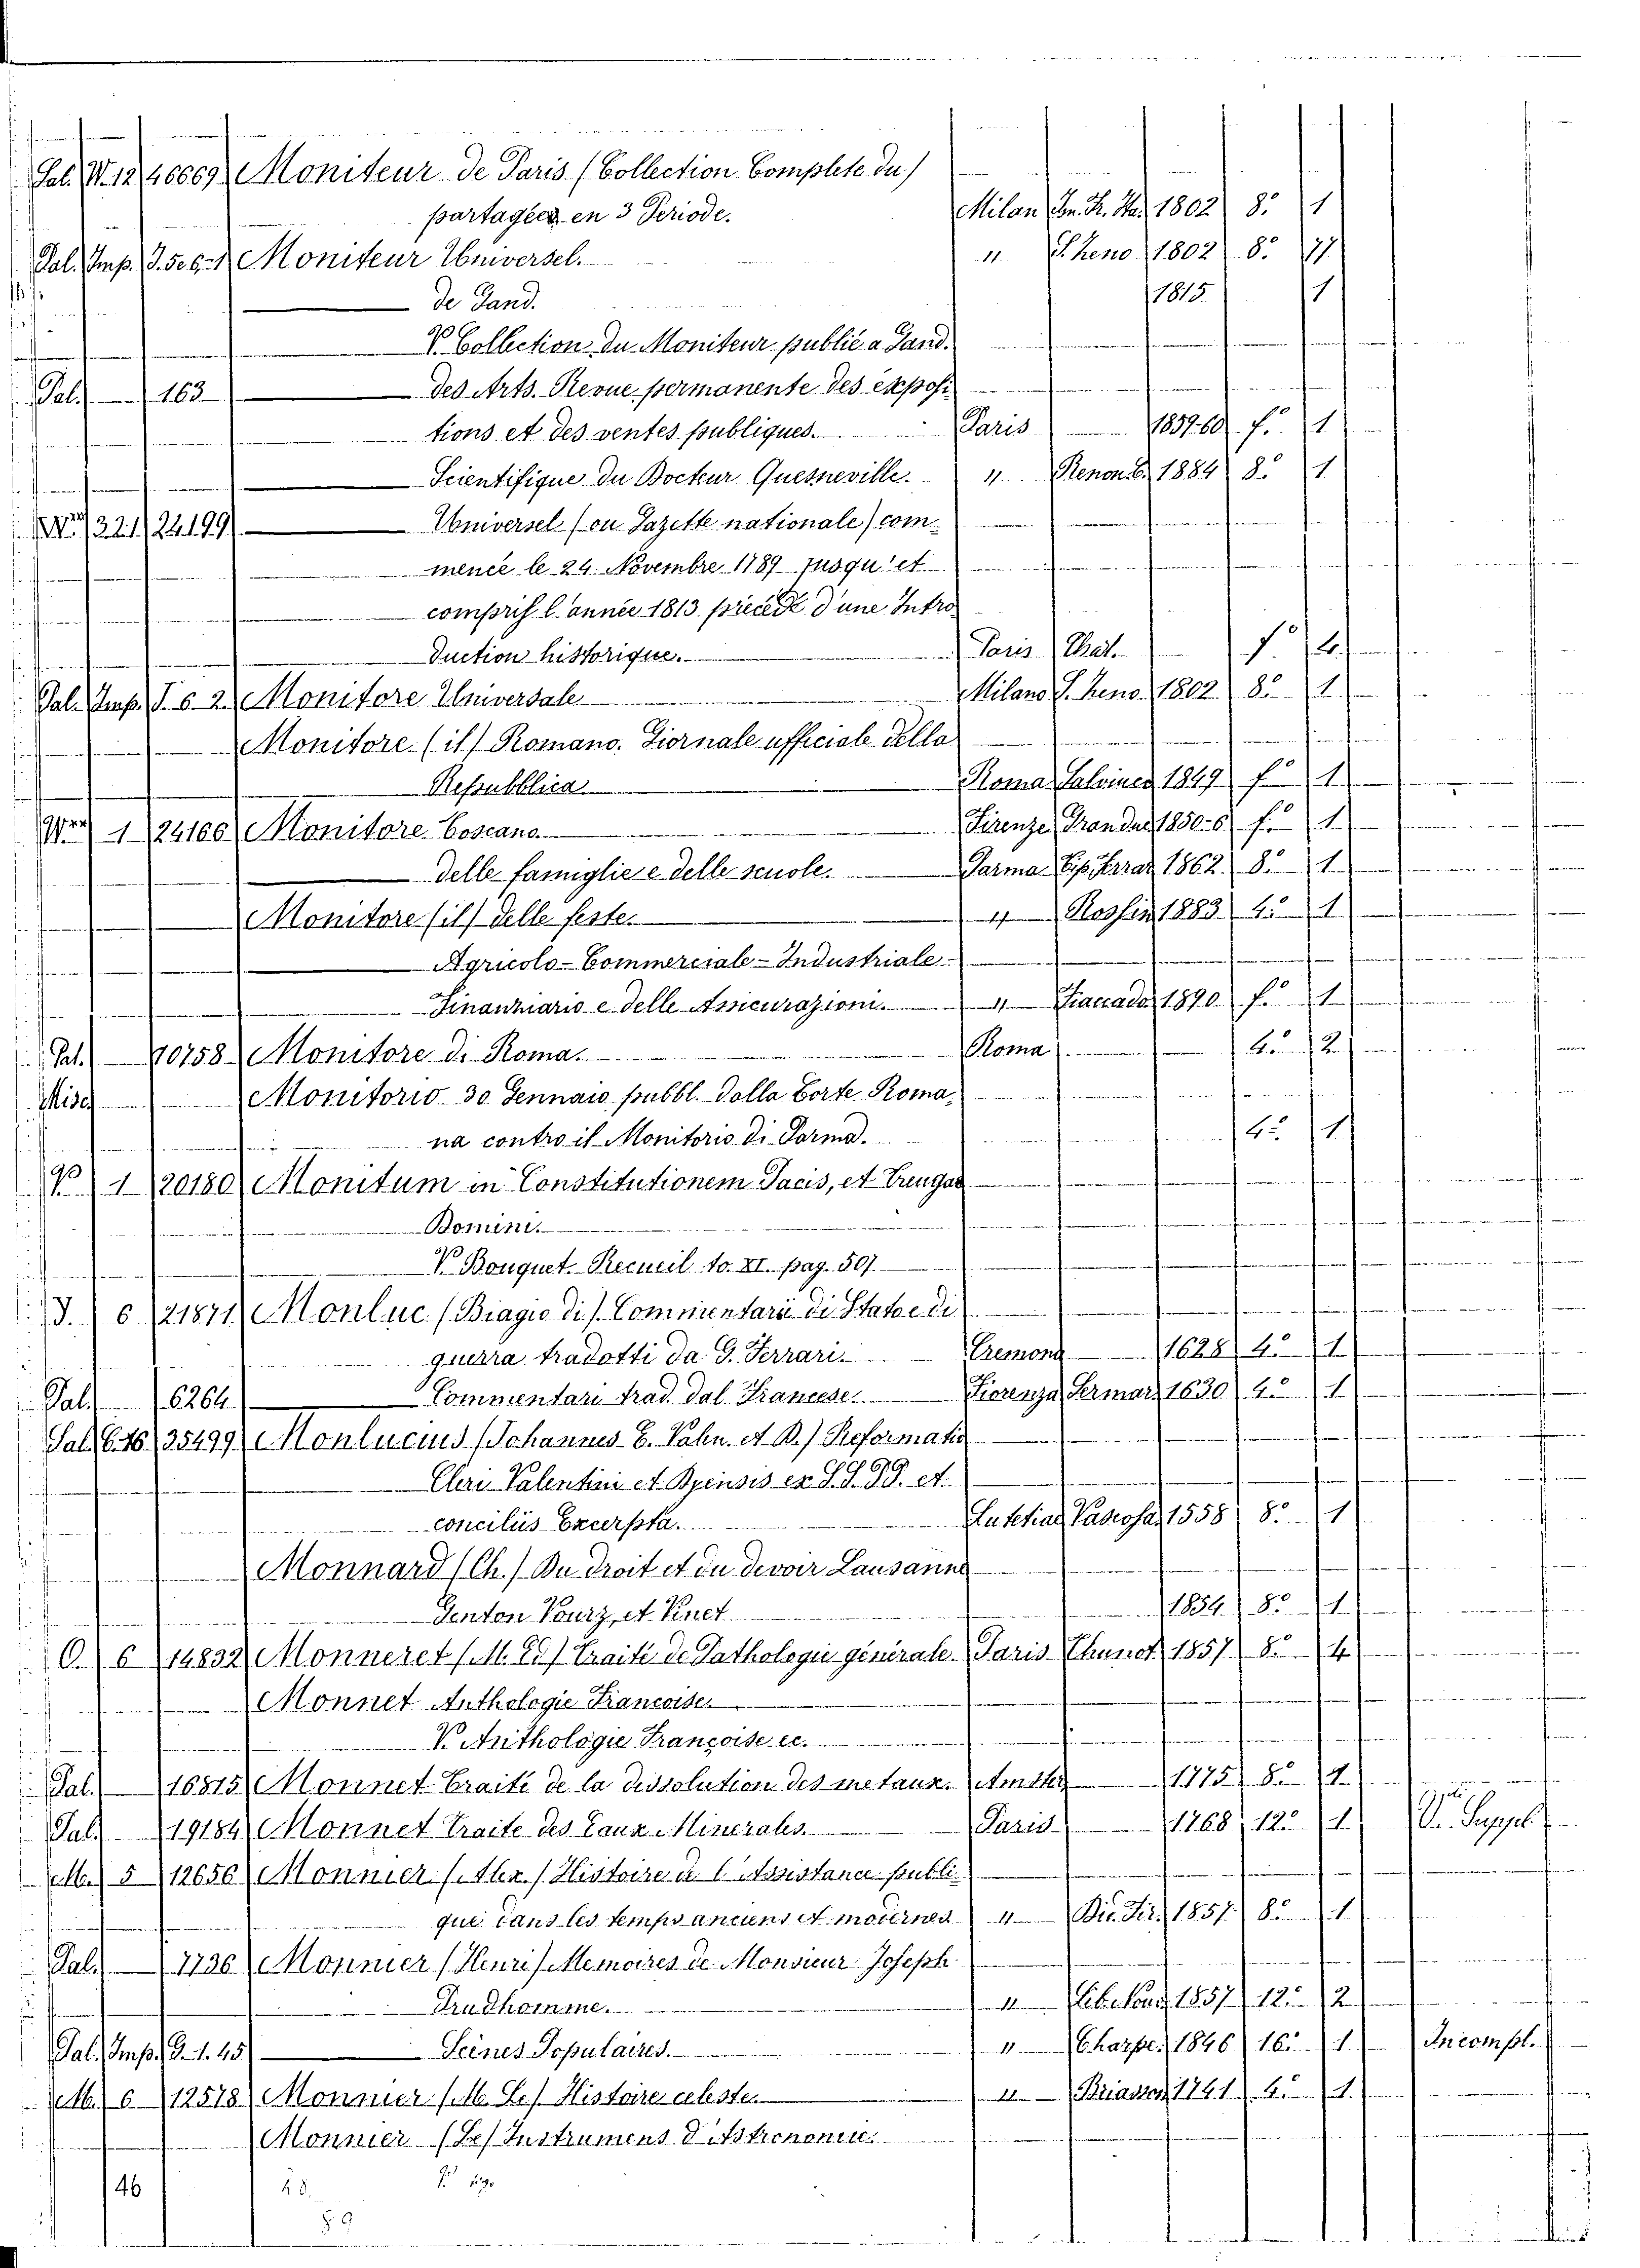 Sal. W. 12 46669 Moniteur de Paris (Collection Complete du)
partagées en 3 Periode. Milan 1802 8.° 1
Pal. Imp. Moniteur Universel. " S. Zeno 1802 8.°
de Gand. 1815 1
V. Collection du Moniteur public a Gand.
Pal. 163 des Arts. Revue permanente des exposi
tions et des ventes publiques. Paris 1859-60 f.° 1
Scientifique du Docteur Quesneville. " Renon 1884 8.° 1
321 24199 Universel (ou Gazette nationale) com
mencé le 24 Novembre 1789 jusqu'et
compris l'année 1813 précédé d'une Intro
duction historique. Paris f.° 4
Pal. Imp. 6. 2. Monitore Universale Milano S. Zeno. 1802 8.° 1
Monitore (il) Romano. Giornale ufficiale della
Repubblica Roma Salviucci 1849 f.° 1
1 24166 Monitore Toscano. Firenze Granduc 1850-6 f.° 1
delle famiglie e delle scuole. Parma Tip. Ferrar 1862 8.° 1
Monitore (il) delle feste. " Rossin 1883 4.° 1
Agricolo-Commerciale-Industriale
Finanziario e delle Assicurazioni. " Fiaccado 1890 f.° 1
Pal. 10758 Monitore di Roma. Roma 4.° 2
Misc. Monitorio 30 Gennaio pubbl. dalla Corte Roma
na contro il Monitorio di Parma. 4.° 1
V. 1 20180 Monitum in Constitutionem Pacis, et Treugae
Domini.
V. Bouquet. Recueil to. XI. pag. 507.
6 21871 Monluc (Biagio di). Commentarii di Stato e di
guerra tradotti da G. Ferrari. Cremona 1628 4.° 1
Pal. 6264 Commentari trad. dal Francese. Fiorenza Sermar 1630 4.° 1
35499 Monlucius (Johannes E. Valen. et D.) Reformatio
Cleri Valentini et Dyensis ex S.S. PP. et
conciliis Excerpta. Lutetiae Vascosa 1558 8.° 1
Monnard (Ch.) Du droit et du devoir Lausanne
Genton Vourz, et Vinet 1834 8.° 1
O. 6 14832 Monneret (M. Ed) Traité de Pathologie générale. Paris Thunot 1857 8.° 4
Monnet Anthologie Francoise.
V. Anthologie Françoise ec.
Pal. 16815 Monnet Traité de la dissolution des metaux. Amster 1775 8.° 1
Pal. 19184 Monnet Traite des Eaux Minerales. Paris 1768 12.° 1 V. Suppl.
M. 5 12656 Monnier (Alex.) Histoire de l'Assistance publi
que dans les temps anciens et modernes " 1857 8.° 1
Pal. 1736 Monnier (Henri) Memoires de Monsieur Joseph
Prudhomme. " 1857 12.° 2
Pal. Imp. G. 1. 45 Scènes Populaires. " Charpe. 1846 16.° 1 Incompl.
M. 6 12578 Monnier (M. Le) Histoire celeste. " Briasson 1741 4.° 1
Monnier (Le) Instrumens d'Astronomie.
46